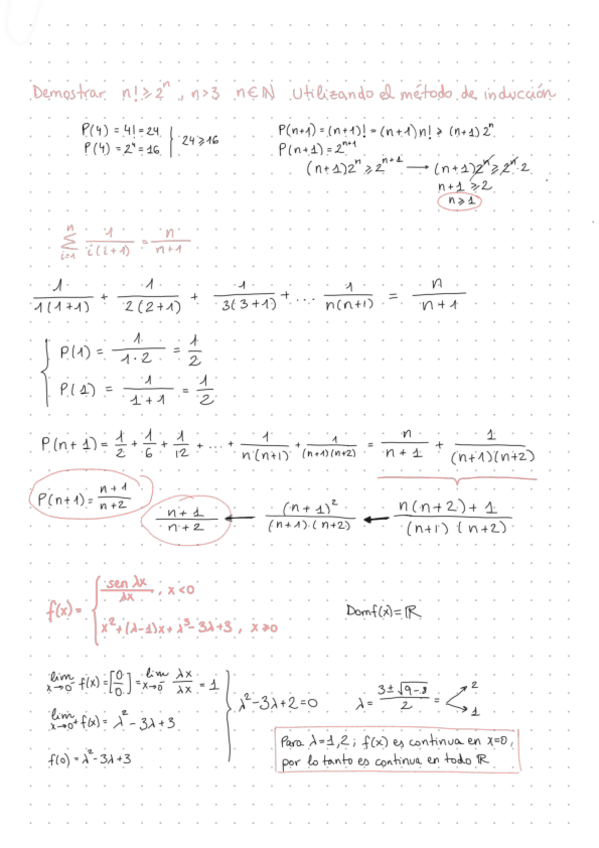 Demostrar n! ≥ 2^n , n>3 n∈ℕ Utilizando el método de inducción
P(4) = 4! = 24
P(4) = 2^4 = 16
} 24 ≥ 16
P(n+1) = (n+1)! = (n+1) n! ≥ (n+1) 2^n
P(n+1) = 2^{n+1}
(n+1) 2^n ≥ 2^{n+1} → (n+1) 2^n ≥ 2^n · 2
n+1 ≥ 2
n ≥ 1
\sum_{i=1}^{n} \frac{1}{i(i+1)} = \frac{n}{n+1}
\frac{1}{1(1+1)} + \frac{1}{2(2+1)} + \frac{1}{3(3+1)} + ... \frac{1}{n(n+1)} = \frac{n}{n+1}
P(1) = \frac{1}{1·2} = \frac{1}{2}
P(1) = \frac{1}{1+1} = \frac{1}{2}
P(n+1) = \frac{1}{2} + \frac{1}{6} + \frac{1}{12} + ... + \frac{1}{n(n+1)} + \frac{1}{(n+1)(n+2)} = \frac{n}{n+1} + \frac{1}{(n+1)(n+2)}
P(n+1) = \frac{n+1}{n+2}
\frac{n+1}{n+2} ← \frac{(n+1)^2}{(n+1)·(n+2)} ← \frac{n(n+2)+1}{(n+1)·(n+2)}
f(x) = { \frac{sen λx}{λx} , x<0
x^2+(λ-1)x+λ^3-3λ+3 , x≥0
Domf(x) = ℝ
lim x→0^- f(x) = [\frac{0}{0}] = lim x→0^- \frac{λx}{λx} = 1
lim x→0^+ f(x) = λ^2 - 3λ + 3
f(0) = λ^2 - 3λ + 3
λ^2 - 3λ + 2 = 0
λ = \frac{3 ± \sqrt{9-8}}{2} = 2
1
Para λ = 1,2 ; f(x) es continua en x=0,
por lo tanto es continua en todo ℝ